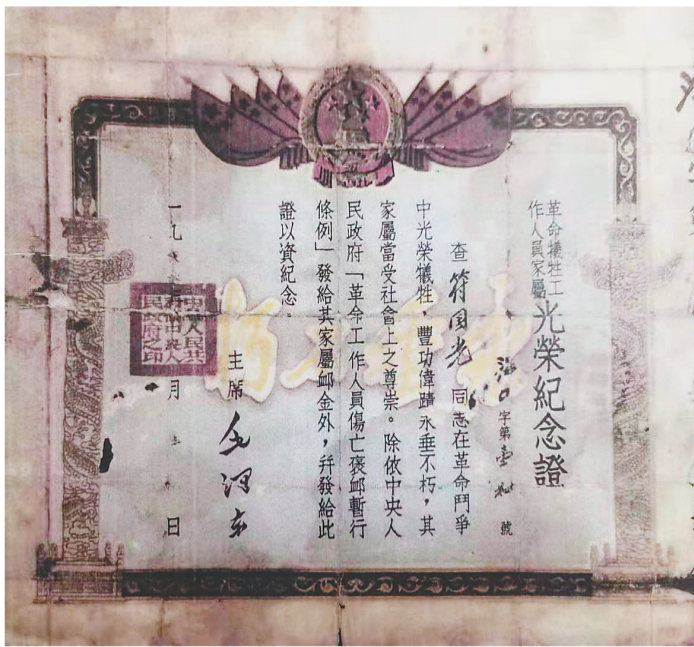 革命犧牲工
作人員家屬
光榮紀念證
字第 號
查符国光同志在革命鬥爭
中光榮犧牲，豐功偉蹟永垂不朽，其
家屬當受社會上之尊崇。除依中央人
民政府「革命工作人員傷亡褒卹暫行
條例」發給其家屬卹金外，幷發給此
證以資紀念。
主席 毛澤東
一九 月 日
中央人民政府之印
永垂不朽